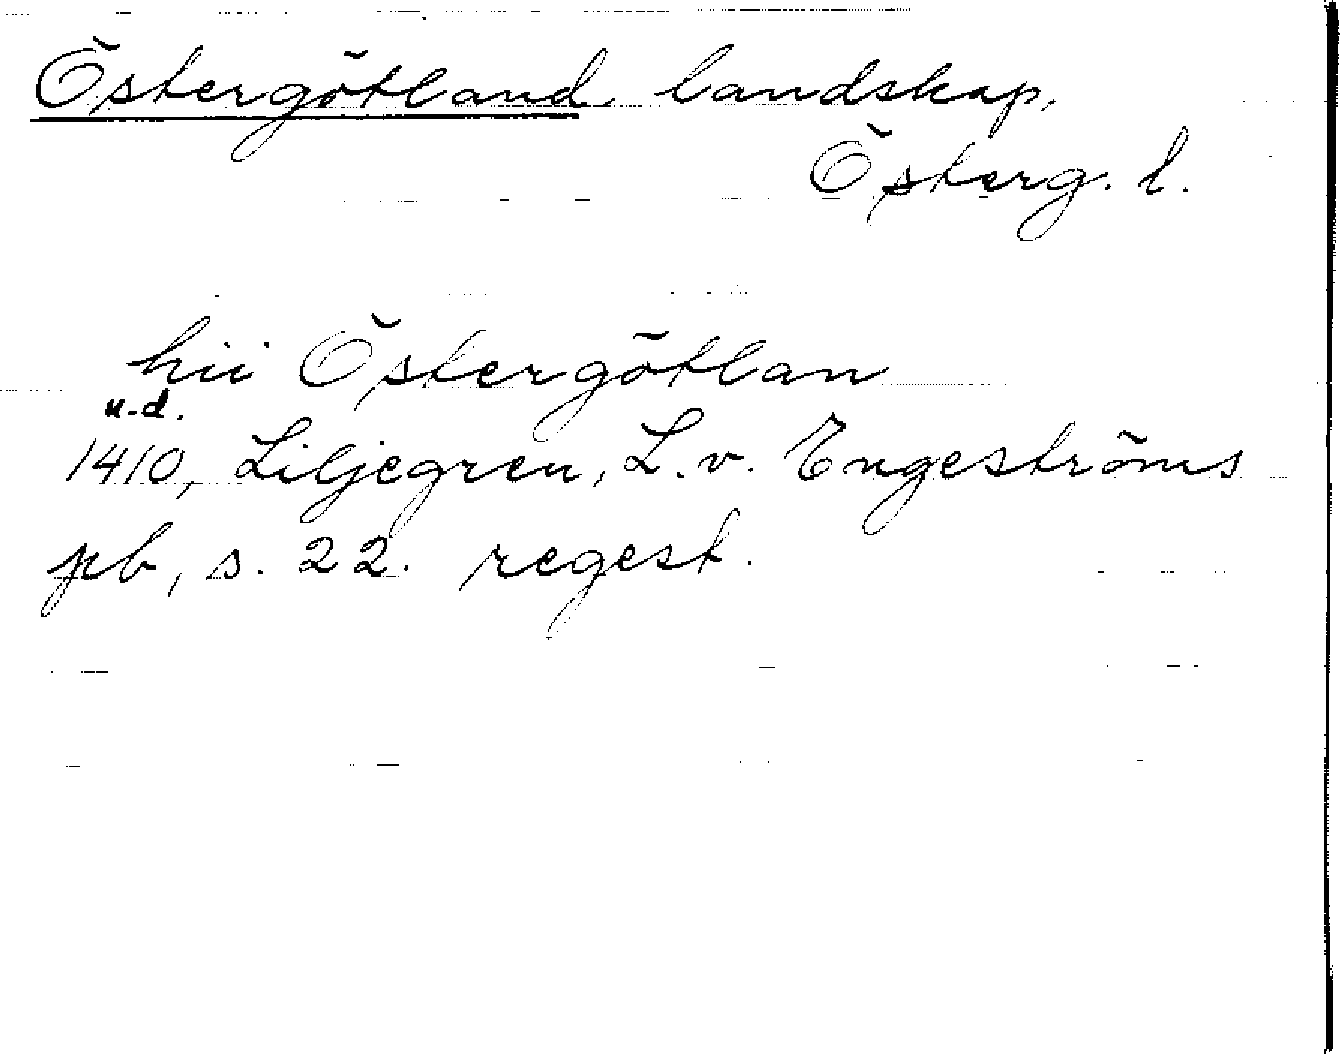 Östergötland, landskap,
Österg. l.
hii Östergötlan
u.d.
1410, Liljegren, L. v. Engeströms
pb, s. 22. regest.